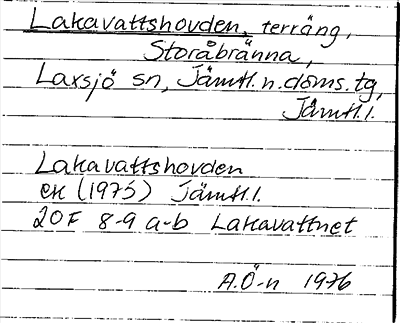 Lakavattshovden, terräng,
Storåbränna,
Laxsjö sn, Jämtl. n. doms. tg,
Jämtl. l.
Lakavattshovden
ek (1975) Jämtl. l.
20F 8-9 a-b Lakavattnet
A.Ö-n 1976